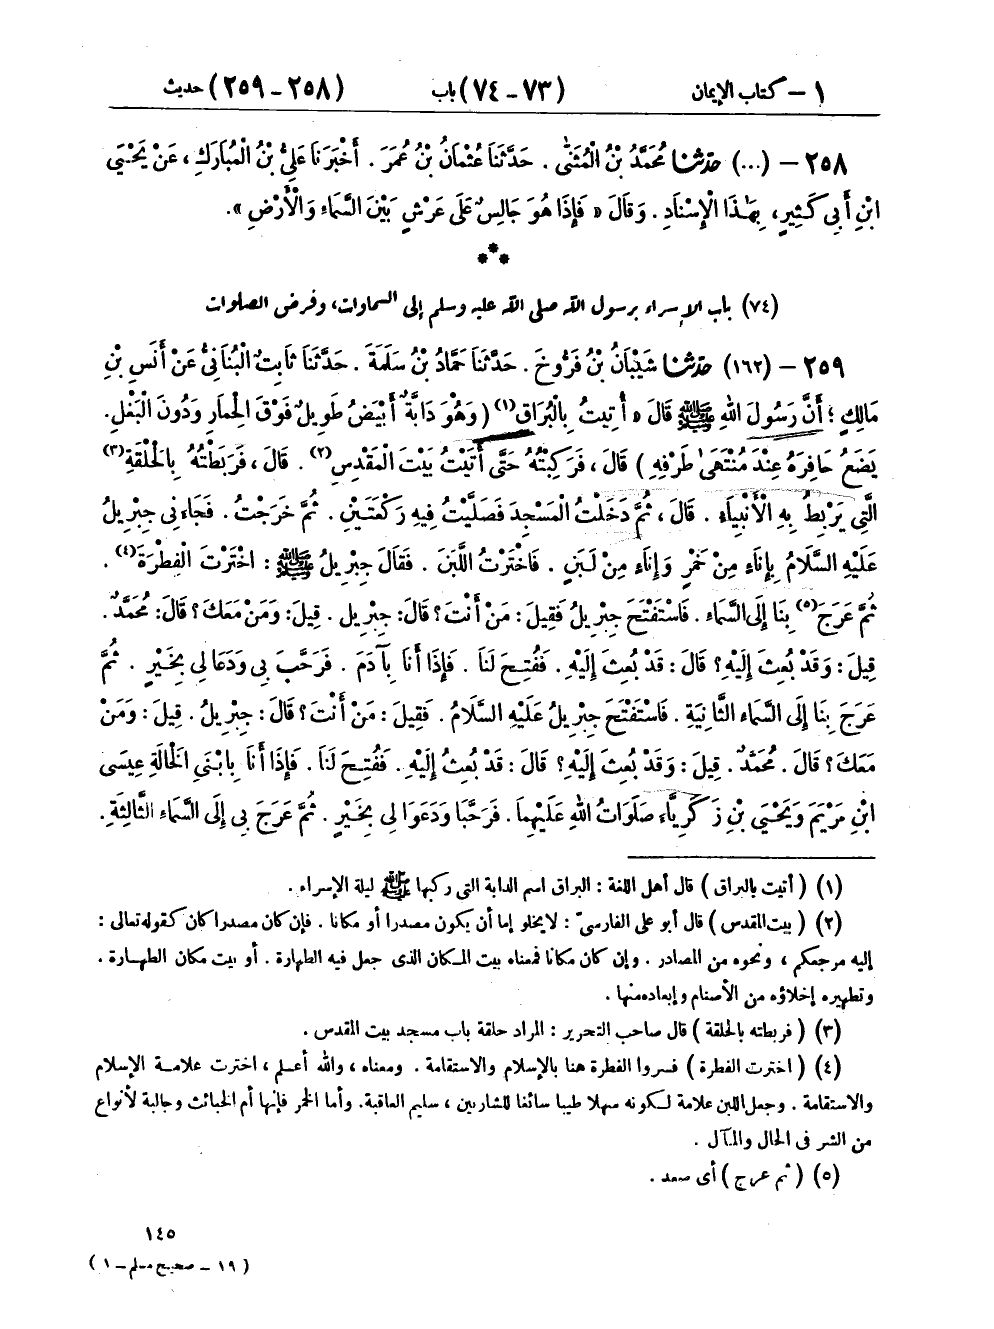 ١ – كتاب الإيمان (٧٣ – ٧٤) باب (٢٥٨ – ٢٥٩) حديث
٢٥٨ – (...) حَدَّثَنَا مُحَمَّدُ بْنُ الْمُثَنَّىٰ . حَدَّثَنَا عُثْمَانُ بْنُ عُمَرَ . أَخْبَرَنَا عَلِيُّ بْنُ الْمُبَارَكِ ، عَنْ يَحْيَىٰ
ابْنِ أَبِي كَثِيرٍ، بِهَٰذَا الْإِسْنَادِ . وَقَالَ « فَإِذَا هُوَ جَالِسٌ عَلَى عَرْشٍ بَيْنَ السَّمَاءِ وَالْأَرْضِ ».
***
(٧٤) باب الإسراء برسول الله صلى الله عليه وسلم إلى السماوات، وفرض الصلوات
٢٥٩ – (١٦٢) حَدَّثَنَا شَيْبَانُ بْنُ فَرُّوخَ . حَدَّثَنَا حَمَّادُ بْنُ سَلَمَةَ . حَدَّثَنَا ثَابِتٌ الْبُنَانِيُّ عَنْ أَنَسِ بْنِ
مَالِكٍ ؛ أَنَّ رَسُولَ اللهِ ﷺ قَالَ « أُتِيتُ بِالْبُرَاقِ(١) ( وَهُوَ دَابَّةٌ أَبْيَضُ طَوِيلٌ فَوْقَ الْحِمَارِ وَدُونَ الْبَغْلِ.
يَضَعُ حَافِرَهُ عِنْدَ مُنْتَهَىٰ طَرْفِهِ ) قَالَ ، فَرَكِبْتُهُ حَتَّى أَتَيْتُ بَيْتَ الْمَقْدِسِ(٢) . قَالَ ، فَرَبَطْتُهُ بِالْحَلْقَةِ(٣)
الَّتِي يَرْبِطُ بِهِ الْأَنْبِيَاءُ . قَالَ ، ثُمَّ دَخَلْتُ الْمَسْجِدَ فَصَلَّيْتُ فِيهِ رَكْعَتَيْنِ . ثُمَّ خَرَجْتُ . فَجَاءَنِي جِبْرِيلُ
عَلَيْهِ السَّلَامُ بِإِنَاءٍ مِنْ خَمْرٍ وَإِنَاءٍ مِنْ لَبَنٍ . فَاخْتَرْتُ اللَّبَنَ . فَقَالَ جِبْرِيلُ ﷺ : اخْتَرْتَ الْفِطْرَةَ(٤) .
ثُمَّ عَرَجَ(٥) بِنَا إِلَى السَّمَاءِ . فَاسْتَفْتَحَ جِبْرِيلُ فَقِيلَ: مَنْ أَنْتَ؟ قَالَ: جِبْرِيلُ . قِيلَ: وَمَنْ مَعَكَ؟ قَالَ: مُحَمَّدٌ .
قِيلَ: وَقَدْ بُعِثَ إِلَيْهِ؟ قَالَ: قَدْ بُعِثَ إِلَيْهِ. فَفُتِحَ لَنَا . فَإِذَا أَنَا بِآدَمَ . فَرَحَّبَ بِي وَدَعَا لِي بِخَيْرٍ . ثُمَّ
عَرَجَ بِنَا إِلَى السَّمَاءِ الثَّانِيَةِ . فَاسْتَفْتَحَ جِبْرِيلُ عَلَيْهِ السَّلَامُ. فَقِيلَ: مَنْ أَنْتَ؟ قَالَ: جِبْرِيلُ. قِيلَ: وَمَنْ
مَعَكَ؟ قَالَ . مُحَمَّدٌ. قِيلَ: وَقَدْ بُعِثَ إِلَيْهِ؟ قَالَ: قَدْ بُعِثَ إِلَيْهِ . فَفُتِحَ لَنَا . فَإِذَا أَنَا بِابْنَيِ الْخَالَةِ عِيسَى
ابْنِ مَرْيَمَ وَيَحْيَىٰ بْنِ زَكَرِيَّاءَ صَلَوَاتُ اللهِ عَلَيْهِمَا. فَرَحَّبَا وَدَعَوَا لِي بِخَيْرٍ . ثُمَّ عَرَجَ بِي إِلَى السَّمَاءِ الثَّالِثَةِ.
(١) ( أتيت بالبراق ) قال أهل اللغة : البراق اسم الدابة التى ركبها ﷺ ليلة الإسراء .
(٢) ( بيت المقدس ) قال أبو على الفارسىّ : لا يخلو إما أن يكون مصدرا أو مكانا . فإن كان مصدرا كان كقوله تعالى :
إليه مرجعكم ، ونحوه من المصادر . وإن كان مكانا فمعناه بيت المكان الذى جعل فيه الطهارة . أو بيت مكان الطهارة .
وتطهيره إخلاؤه من الأصنام وإبعاده منها .
(٣) ( فربطته بالحلقة ) قال صاحب التحرير : المراد حلقة باب مسجد بيت المقدس .
(٤) ( اخترت الفطرة ) فسروا الفطرة هنا بالإسلام والاستقامة . ومعناه ، والله أعلم ، اخترت علامة الإسلام
والاستقامة . وجعل اللبن علامة لكونه سهلا طيبا سائغا للشاربين ، سليم العاقبة. وأما الخمر فإنها أم الخبائث وجالبة لأنواع
من الشر فى الحال والمآل .
(٥) ( ثم عرج ) أى صعد .
١٤٥
( ١٩ – صحيح مسلم – ١ )